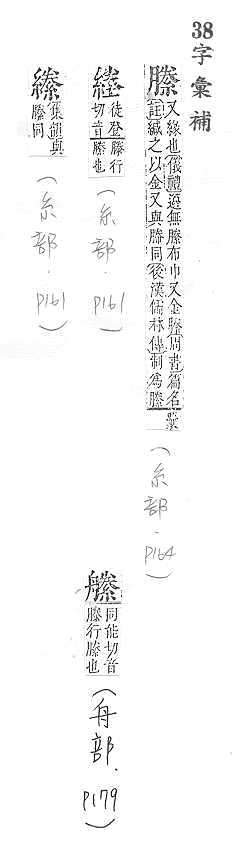 38字彙補
縢
又緣也儀禮遊無縢布巾又金縢周書篇名
註緘之以金又與縢同後漢儒林傳制爲縢囊
(糸部.P164)
徒登
切音縢行
縢也
(糸部.P161)
集韻與
縢同
(糸部.P161)
同能切音
縢行縢也
(舟部.P179)